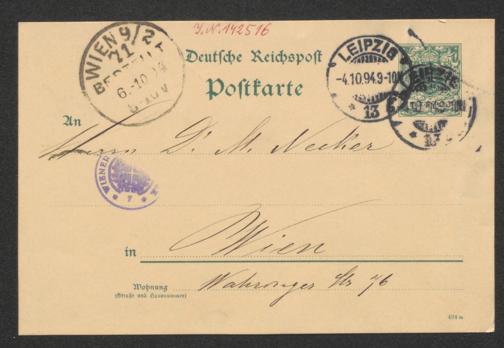 J.N. 142516
WIEN 9/2
71
BESTELLT
6.10.94
Deutsche Reichspost
Postkarte
LEIPZIG
-4.10.94.9-10N
13
LEIPZIG
13
An
Herrn Dr. M. Necker
WIENER
7
in Wien
Wohnung
(Straße und Hausnummer)
Währinger Str 76